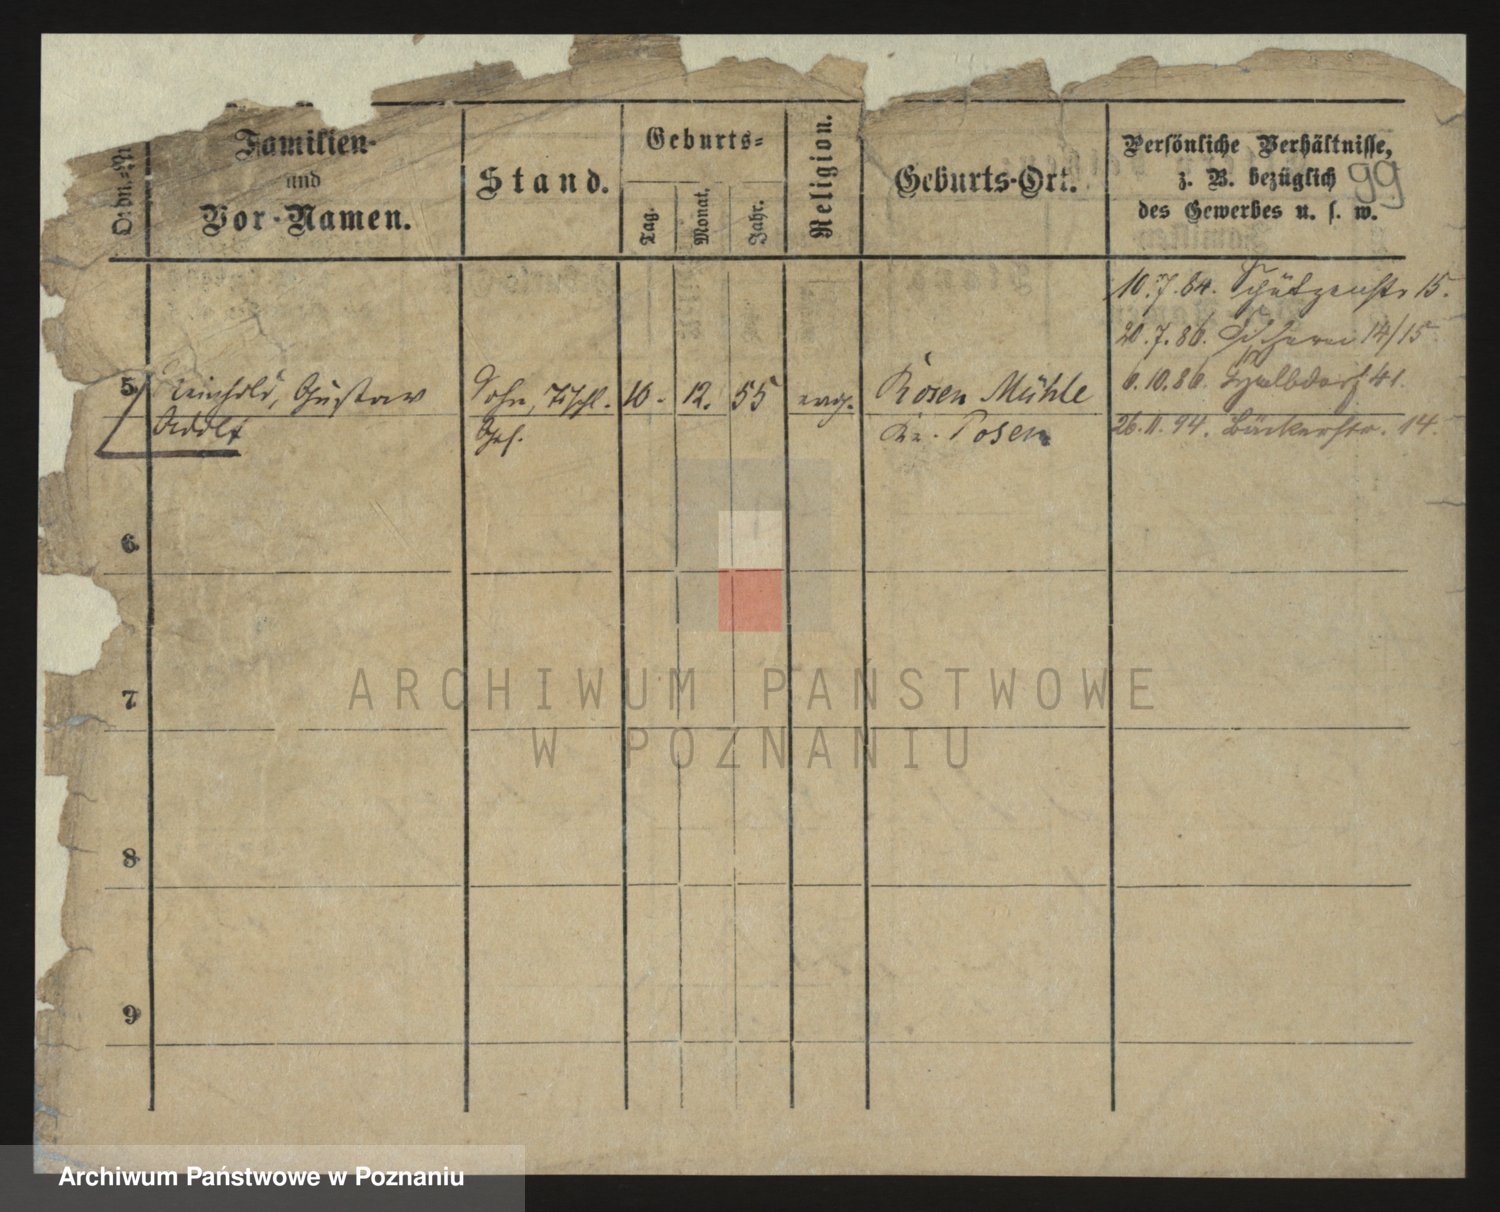 Ordn.-Nr.
Familien-
und
Vor-Namen.
Stand.
Geburts-
Tag.
Monat.
Jahr.
Religion.
Geburts-Ort.
Persönliche Verhältnisse,
z. B. bezüglich
des Gewerbes u. s. w.
99
10.7.84. Schützenstr 15.
20.7.86. Fischerei 14/15
5 Reinhold, Gustav Sohn, Tischl. 10. 12. 55 evg. Rosen Mühle 6.10.86. 41.
Adolf Ges. Kr. Posen 26.11.94. Bäckerstr. 14.
6
7
8
9
ARCHIWUM PAŃSTWOWE
W POZNANIU
Archiwum Państwowe w Poznaniu